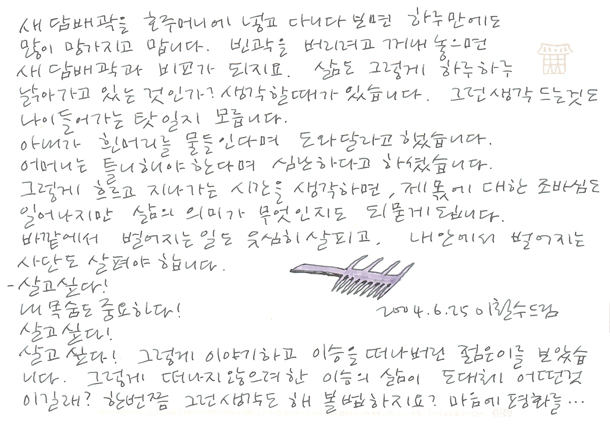 새 담배곽을 호주머니에 넣고 다니다 보면 하루만에도
많이 망가지고 맙니다. 빈곽을 버리려고 꺼내 놓으면
새 담배곽과 비교가 되지요. 삶도 그렇게 하루하루
낡아가고 있는 것인가? 생각할때가 있습니다. 그런생각 드는것도
나이들어가는 탓일지 모릅니다.
아내가 흰머리를 물들인다며 도와달라고 했습니다.
어머니는 틀니해야한다며 심난하다고 하셨습니다.
그렇게 흐르고 지나가는 시간을 생각하면, 제 몫에 대한 조바심도
일어나지만 삶의 의미가 무엇인지도 되묻게 됩니다.
바깥에서 벌어지는 일도 유심히 살피고, 내 안에서 벌어지는
사단도 살펴야 합니다.
- 살고싶다!
내 목숨도 중요하다!
2004.6.25 이철수드림
살고싶다!
살고 싶다! 그렇게 이야기하고 이승을 떠나버린 젊은이를 보았습
니다. 그렇게 떠나지 않으려한 이승의 삶이 도대체 어떤것
이길래? 한번쯤 그런생각도 해 볼 법하지요? 마음에 평화를…